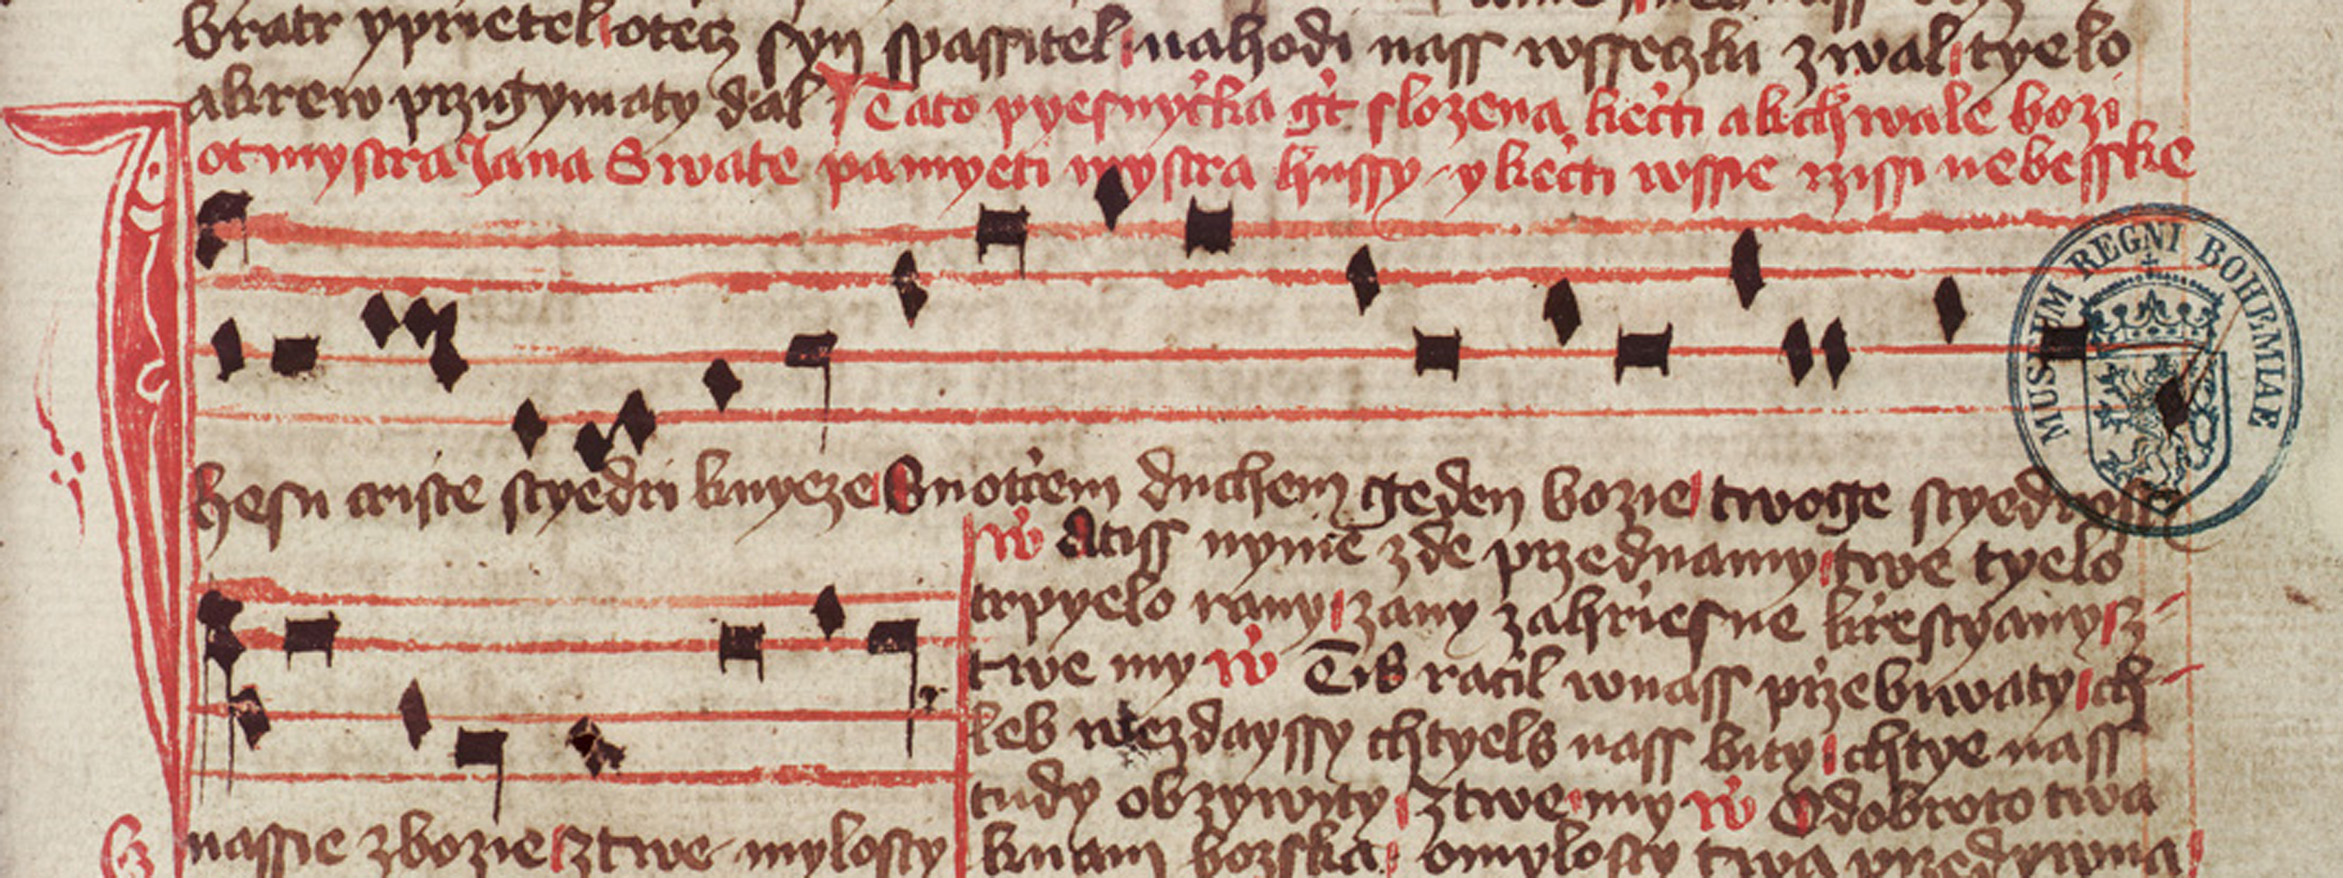 bratr yprietel otecz syn spassitel nahodi nass wsseczku zwal tyelo
akrew przigymaty dal Tato pyesnyčka gt slozena kečti akchwale bozi
otmystra Jana Swate pamyeti mystra hussy ykečti wssie rzissi nebesske
hesu criste sstyedri knyeze Snotcem duchem geden bozie twoge styedrost
nassie zbozie ztwe mylosty
Atiss nynie zde przednamy twe tyelo
trpyelo rany zany zahriesne krestyany z
twe my Tis racil wnass przebywaty ch
leb nezdayssy chtyels nass bity chtye nass
tudy obzywity ztwe my Odobroto twa
knam bozska omylosty twa przedywna
MUSEUM REGNI BOHEMIAE